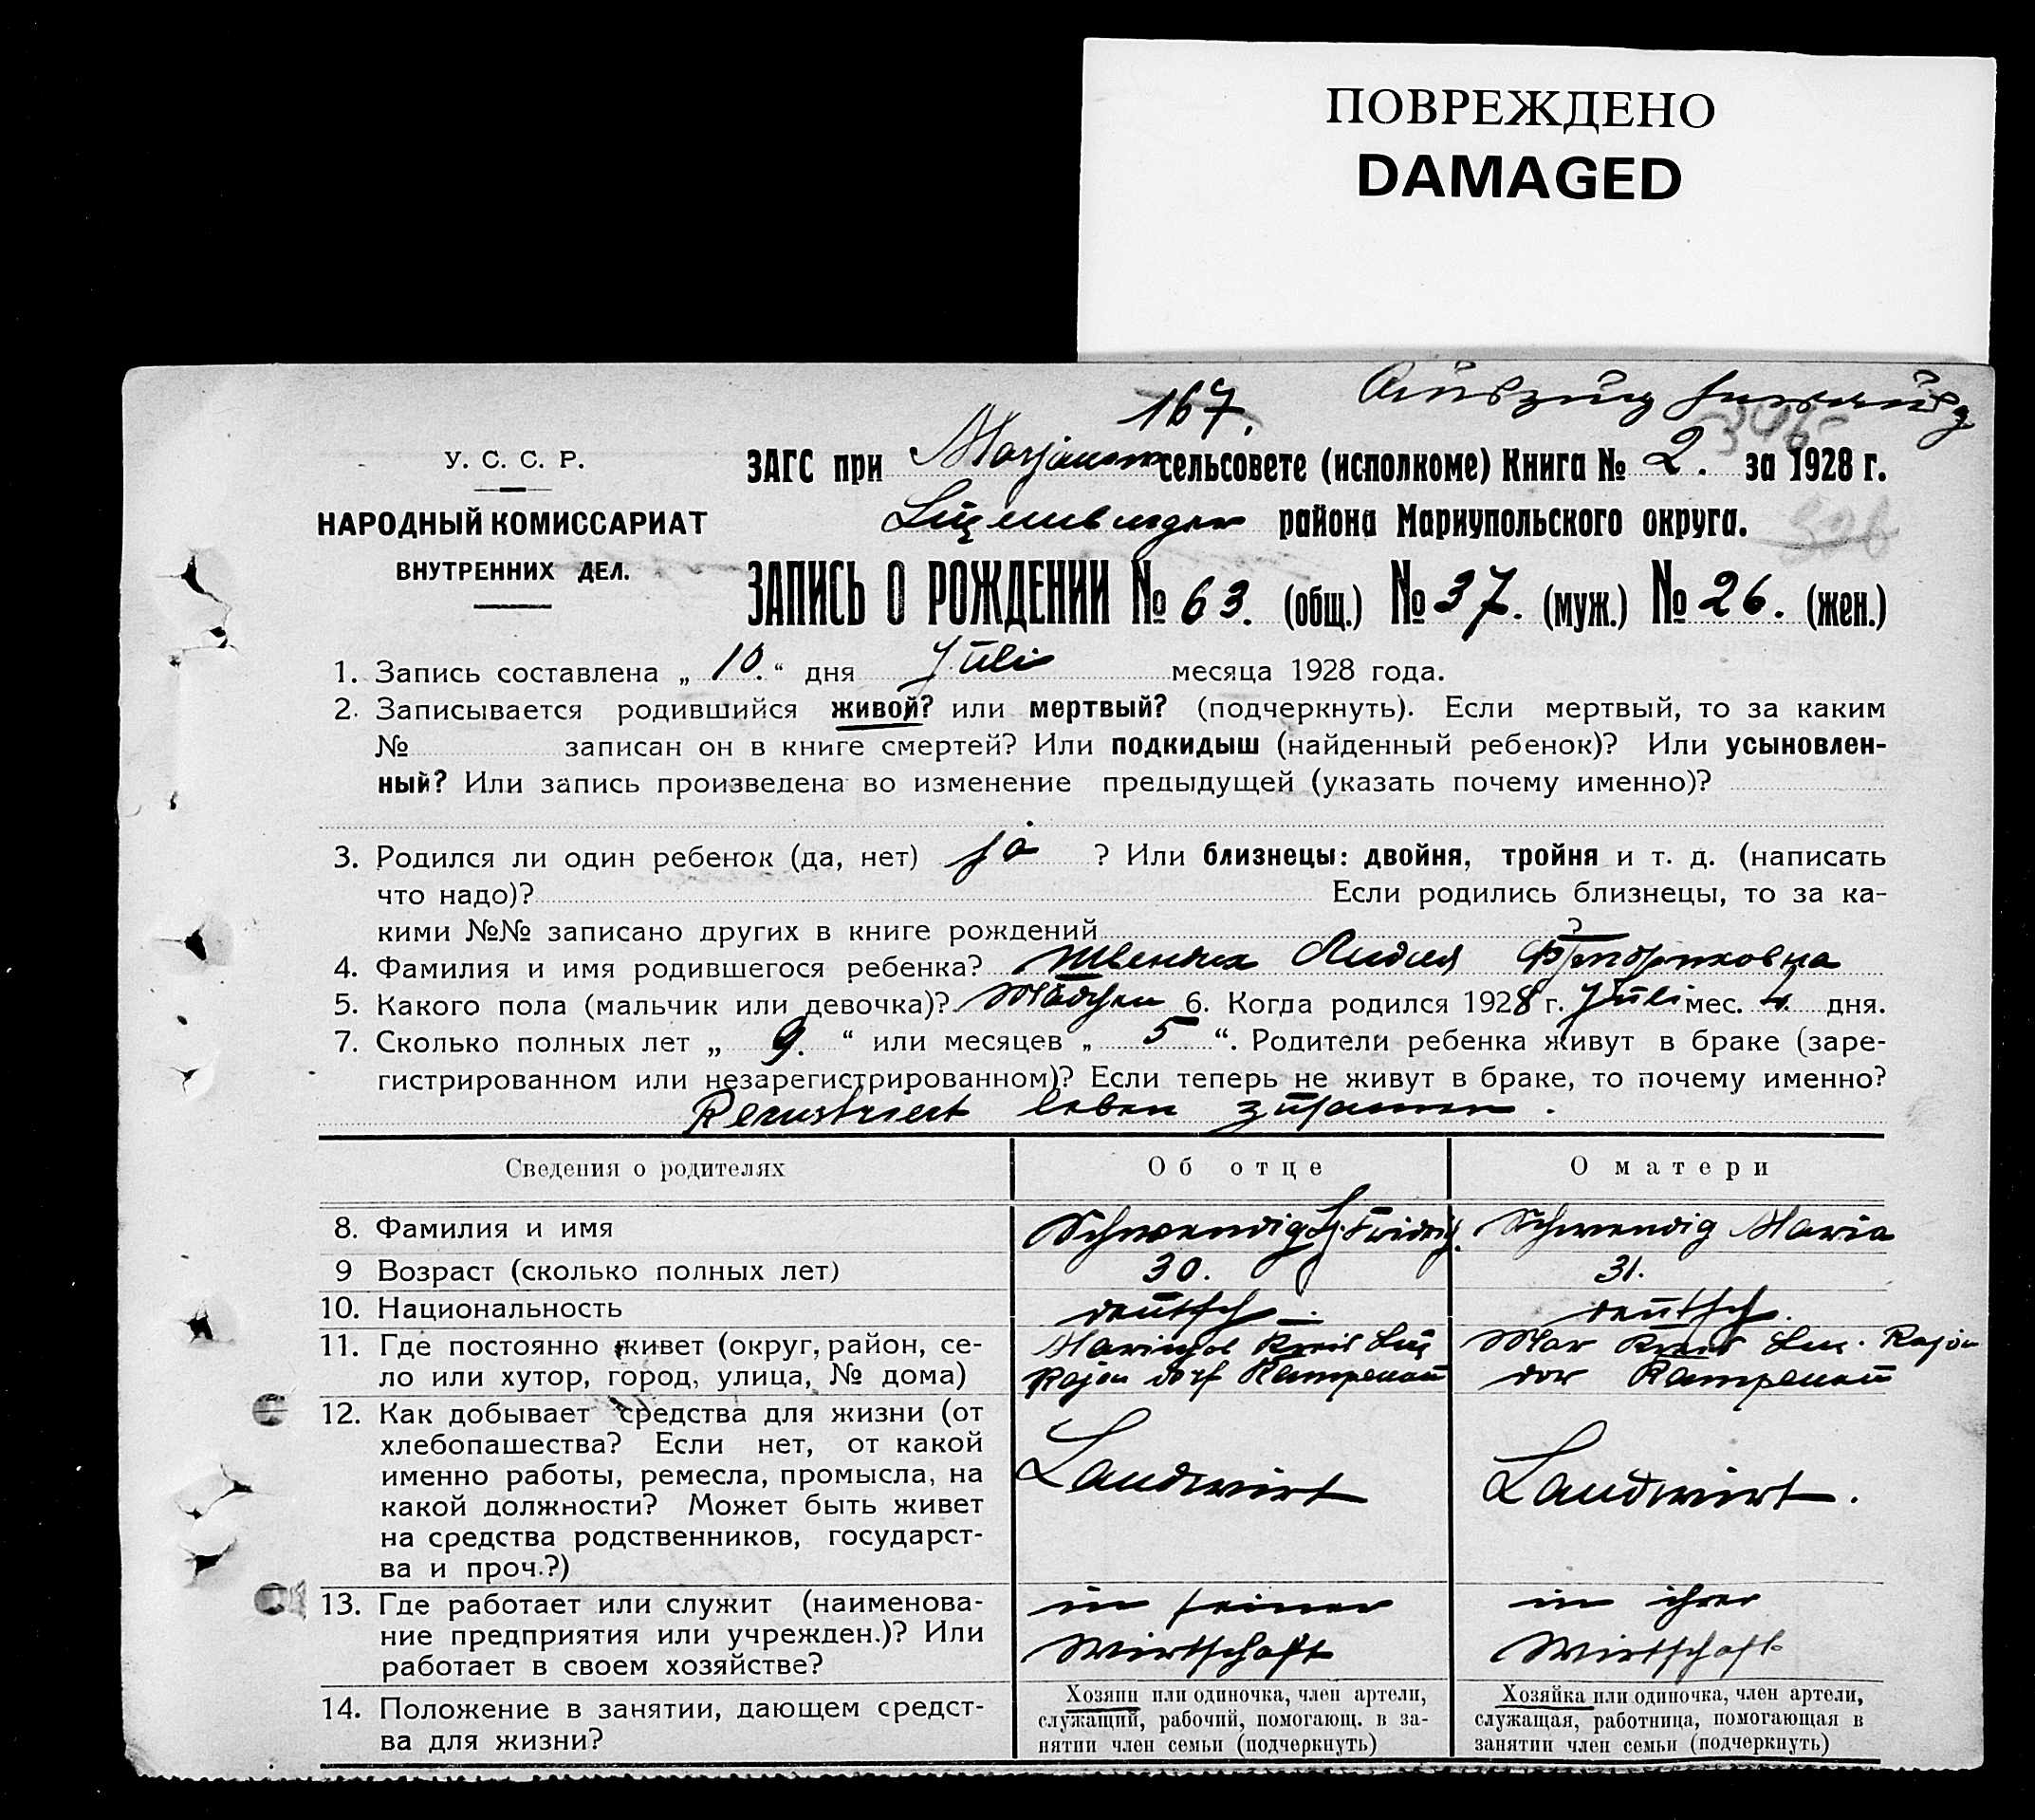 ПОВРЕЖДЕНО
DAMAGED
167.
Auszug
346
У. С. С. Р.
НАРОДНЫЙ КОМИССАРИАТ
ВНУТРЕННИХ ДЕЛ.
ЗАГС при Marjanow сельсовете (исполкоме) Книга № 2. за 1928 г.
района Мариупольского округа.
ЗАПИСЬ О РОЖДЕНИИ № 63. (общ.) № 37. (муж.) № 26. (жен.)
1. Запись составлена „ 10. “ дня Juli месяца 1928 года.
2. Записывается родившийся живой? или мертвый? (подчеркнуть). Если мертвый, то за каким
№ записан он в книге смертей? Или подкидыш (найденный ребенок)? Или усыновлен-
ный? Или запись произведена во изменение предыдущей (указать почему именно)?
3. Родился ли один ребенок (да, нет) ja ? Или близнецы: двойня, тройня и т. д. (написать
что надо)? Если родились близнецы, то за ка-
кими №№ записано других в книге рождений ?
4. Фамилия и имя родившегося ребенка? Швендих Лидия Фридриховна
5. Какого пола (мальчик или девочка)? Mädchen 6. Когда родился 1928 г. Juli мес. 4. дня.
7. Сколько полных лет „ 9. “ или месяцев „ 5 “. Родители ребенка живут в браке (заре-
гистрированном или незарегистрированном)? Если теперь не живут в браке, то почему именно?
leben zusammen.
Сведения о родителях
Об отце
О матери
8. Фамилия и имя
Schwendig Fridrich.
Schwendig Maria
9 Возраст (сколько полных лет)
30.
31.
10. Национальность
deutsch.
deutsch.
11. Где постоянно живет (округ, район, се-
ло или хутор, город, улица, № дома)
Mariupol Kreis Luz
Rajon dorf Kampenau
Mar Kreis Luz. Rajon
dor Kampenau
12. Как добывает средства для жизни (от
хлебопашества? Если нет, от какой
именно работы, ремесла, промысла, на
какой должности? Может быть живет
на средства родственников, государст-
ва и проч.?)
Landwirt
Landwirt.
13. Где работает или служит (наименова-
ние предприятия или учрежден.)? Или
работает в своем хозяйстве?
in seiner
Wirtschaft
in ihrer
Wirtschaft
14. Положение в занятии, дающем средст-
ва для жизни?
Хозяин или одиночка, член артели,
служащий, рабочий, помогающ. в за-
нятии член семьи (подчеркнуть)
Хозяйка или одиночка, член артели,
служащая, работница, помогающая в
занятии член семьи (подчеркнуть)